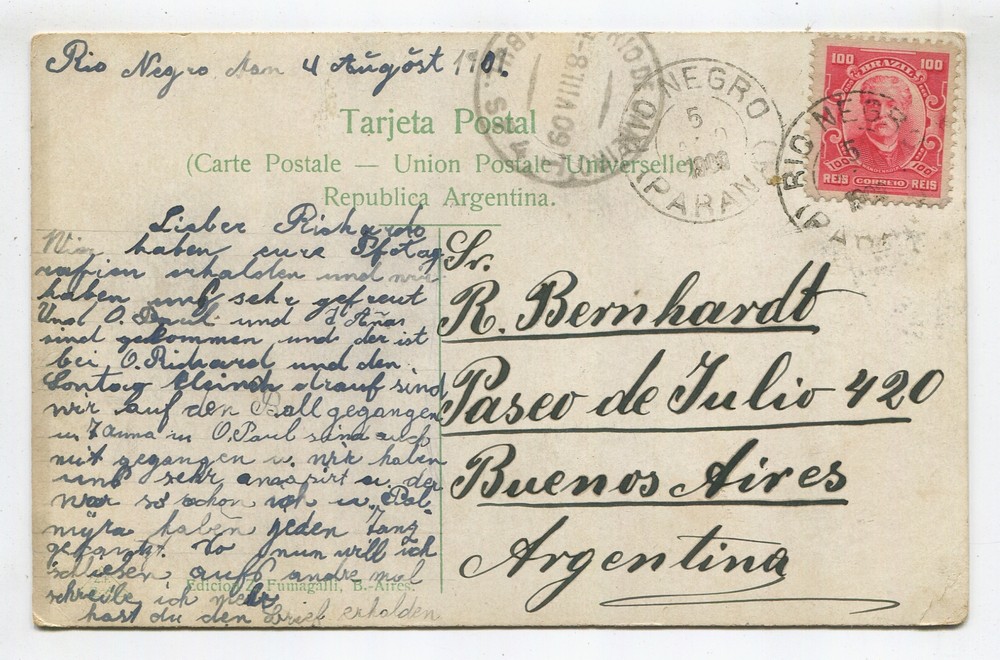 Rio Negro den 4 Augóst 1909.
Tarjeta Postal
(Carte Postale — Union Postale Universelle)
Republica Argentina.
RIO NEGRO
5
1909
(PARANA)
RIO NEGRO
5
(PARANA)
RIO DE JANEIRO
100 BRAZIL 100
100 100
REIS CORREIO REIS
Lieber Richardo
Wir haben eure Pfotog
rafien erhalden und wir
haben uns sehr gefreut
Und O. Paul und T. Anna
sind gekommen und der ist
bei O. Richard und den
Sontag gleinch drauf sind
wir auf den Ball gegangen
un T anna u O. Paul sind auch
mit gegangen u. wir haben
uns sehr amüsirt u. der
war so schön ich u. Pal-
myra haben jeden tanz
getanzt. So nun will ich
schliesen, aufs andre mal
schreibe ich mehr
hast du den Brief erhalden
Sr.
R. Bernhardt
Paseo de Julio 420
Buenos Aires
Argentina
Edicion Z. Fumagalli, B.-Aires.